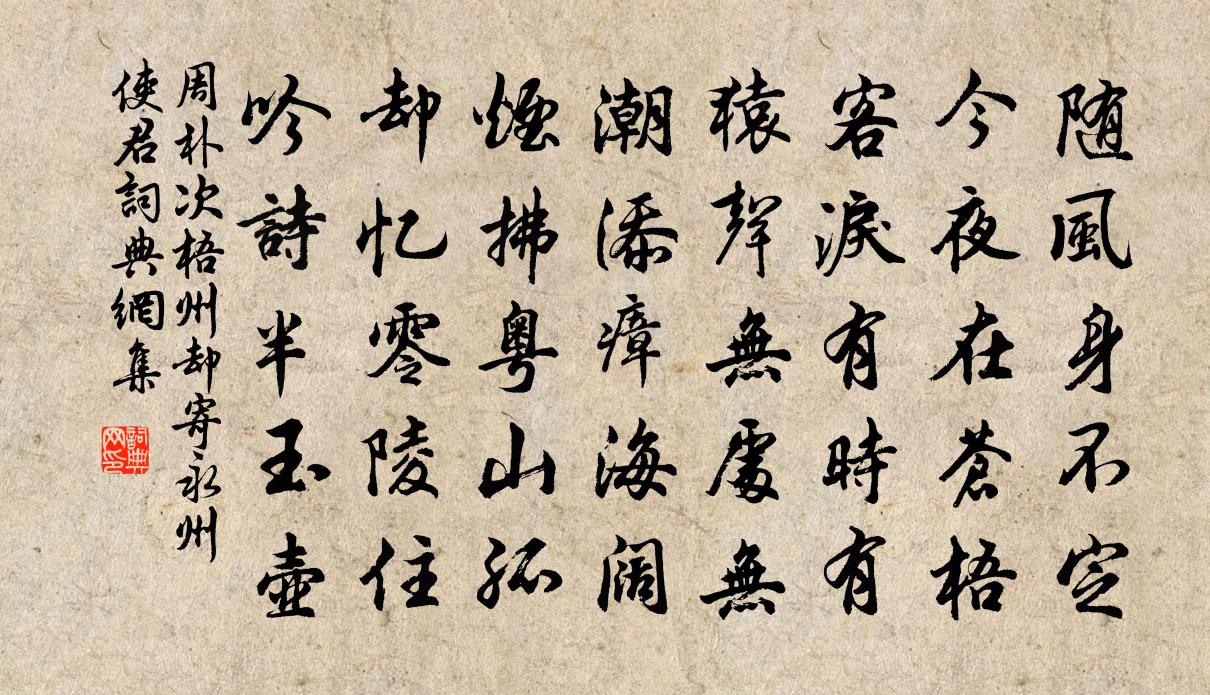 随風身不定
今夜在蒼梧
客淚有時有
猿聲無處無
潮添瘴海闊
煙拂粵山孤
却忆零陵住
吟詩半玉壺
周朴次梧州却寄永州
使君詞典網集
詞典
网印